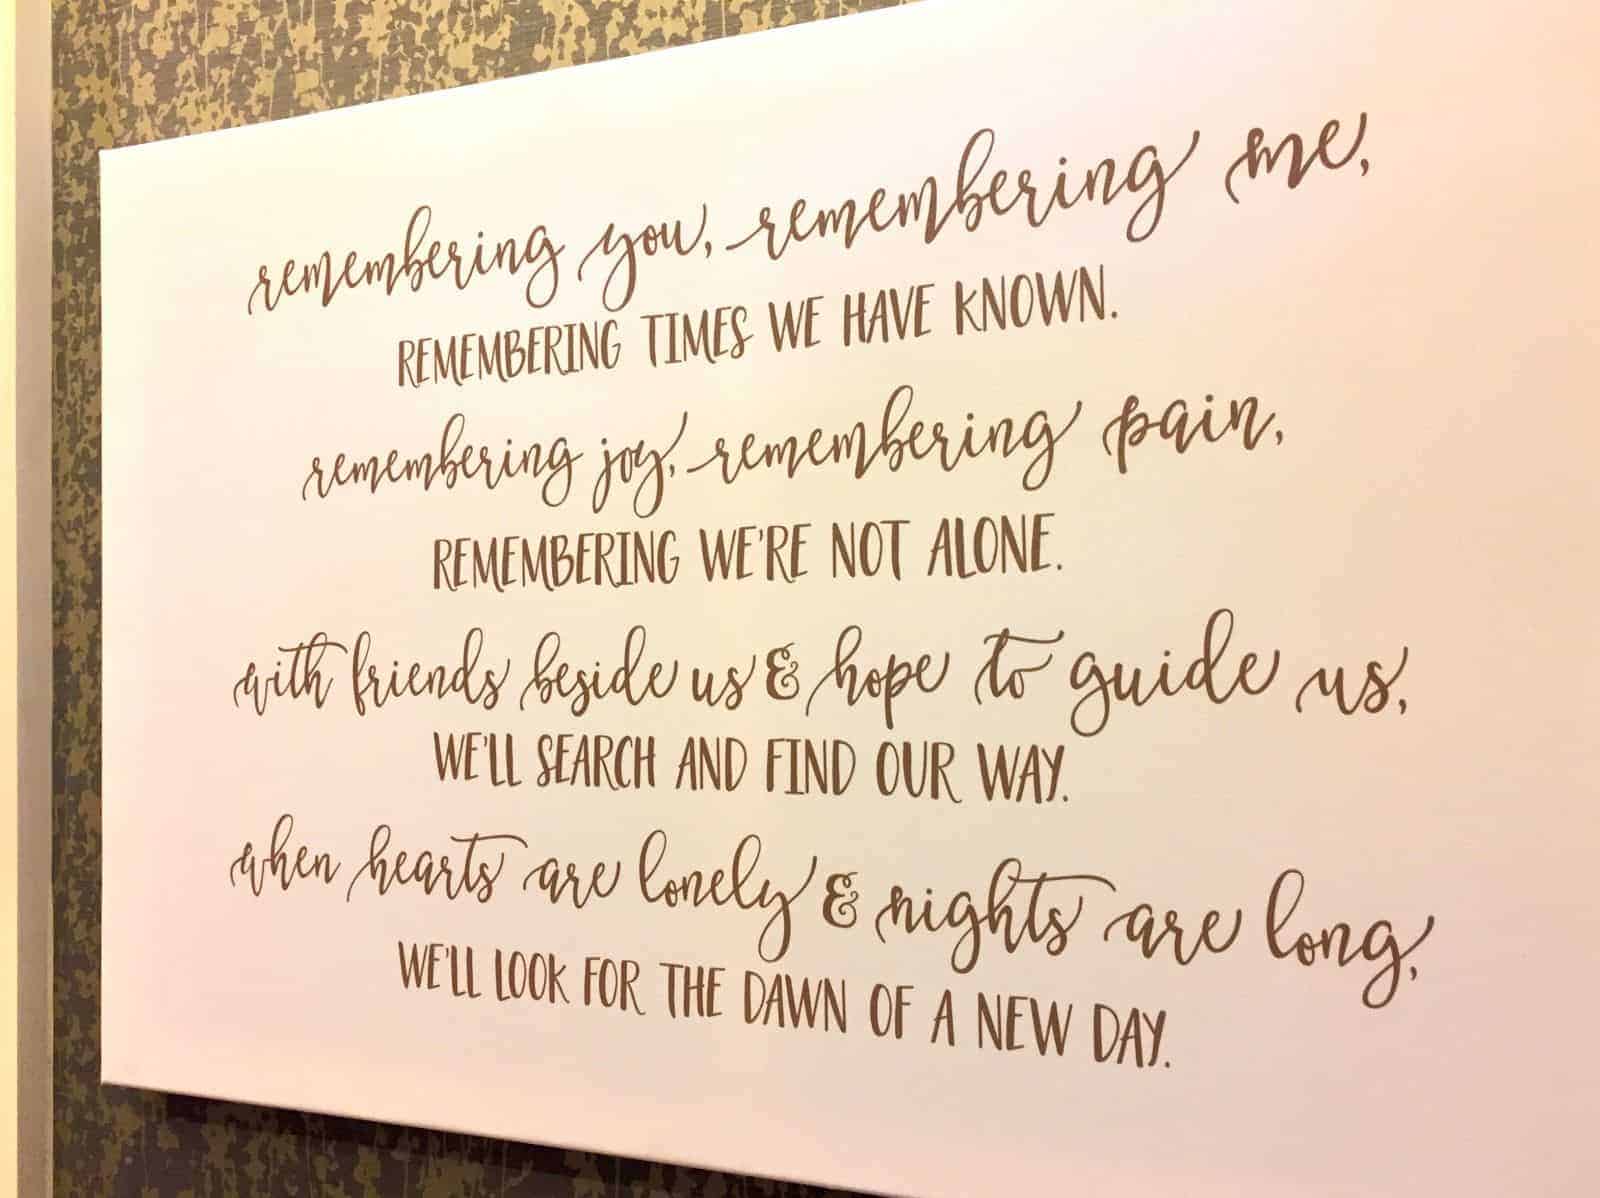 remembering you, remembering me,
REMEMBERING TIMES WE HAVE KNOWN.
remembering joy, remembering pain,
REMEMBERING WE'RE NOT ALONE.
with friends beside us & hope to guide us,
WE'LL SEARCH AND FIND OUR WAY.
when hearts are lonely & nights are long,
WE'LL LOOK FOR THE DAWN OF A NEW DAY.